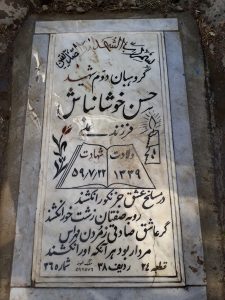 گروهبان دوم شهید
حسن خوشانباش
فرزند
ولادت شهادت
۱۳۳۹ ۵۹/۷/۲۲
در مسلخ عشق جز نکو را نکشند
روبه صفتان زشت خو را نکشند
گر عاشق صادقی ز مردن مهراس
مردار بود هر آنکه او را نکشند
قطعه ۲۴ ردیف ۳۸ شماره ۲۶